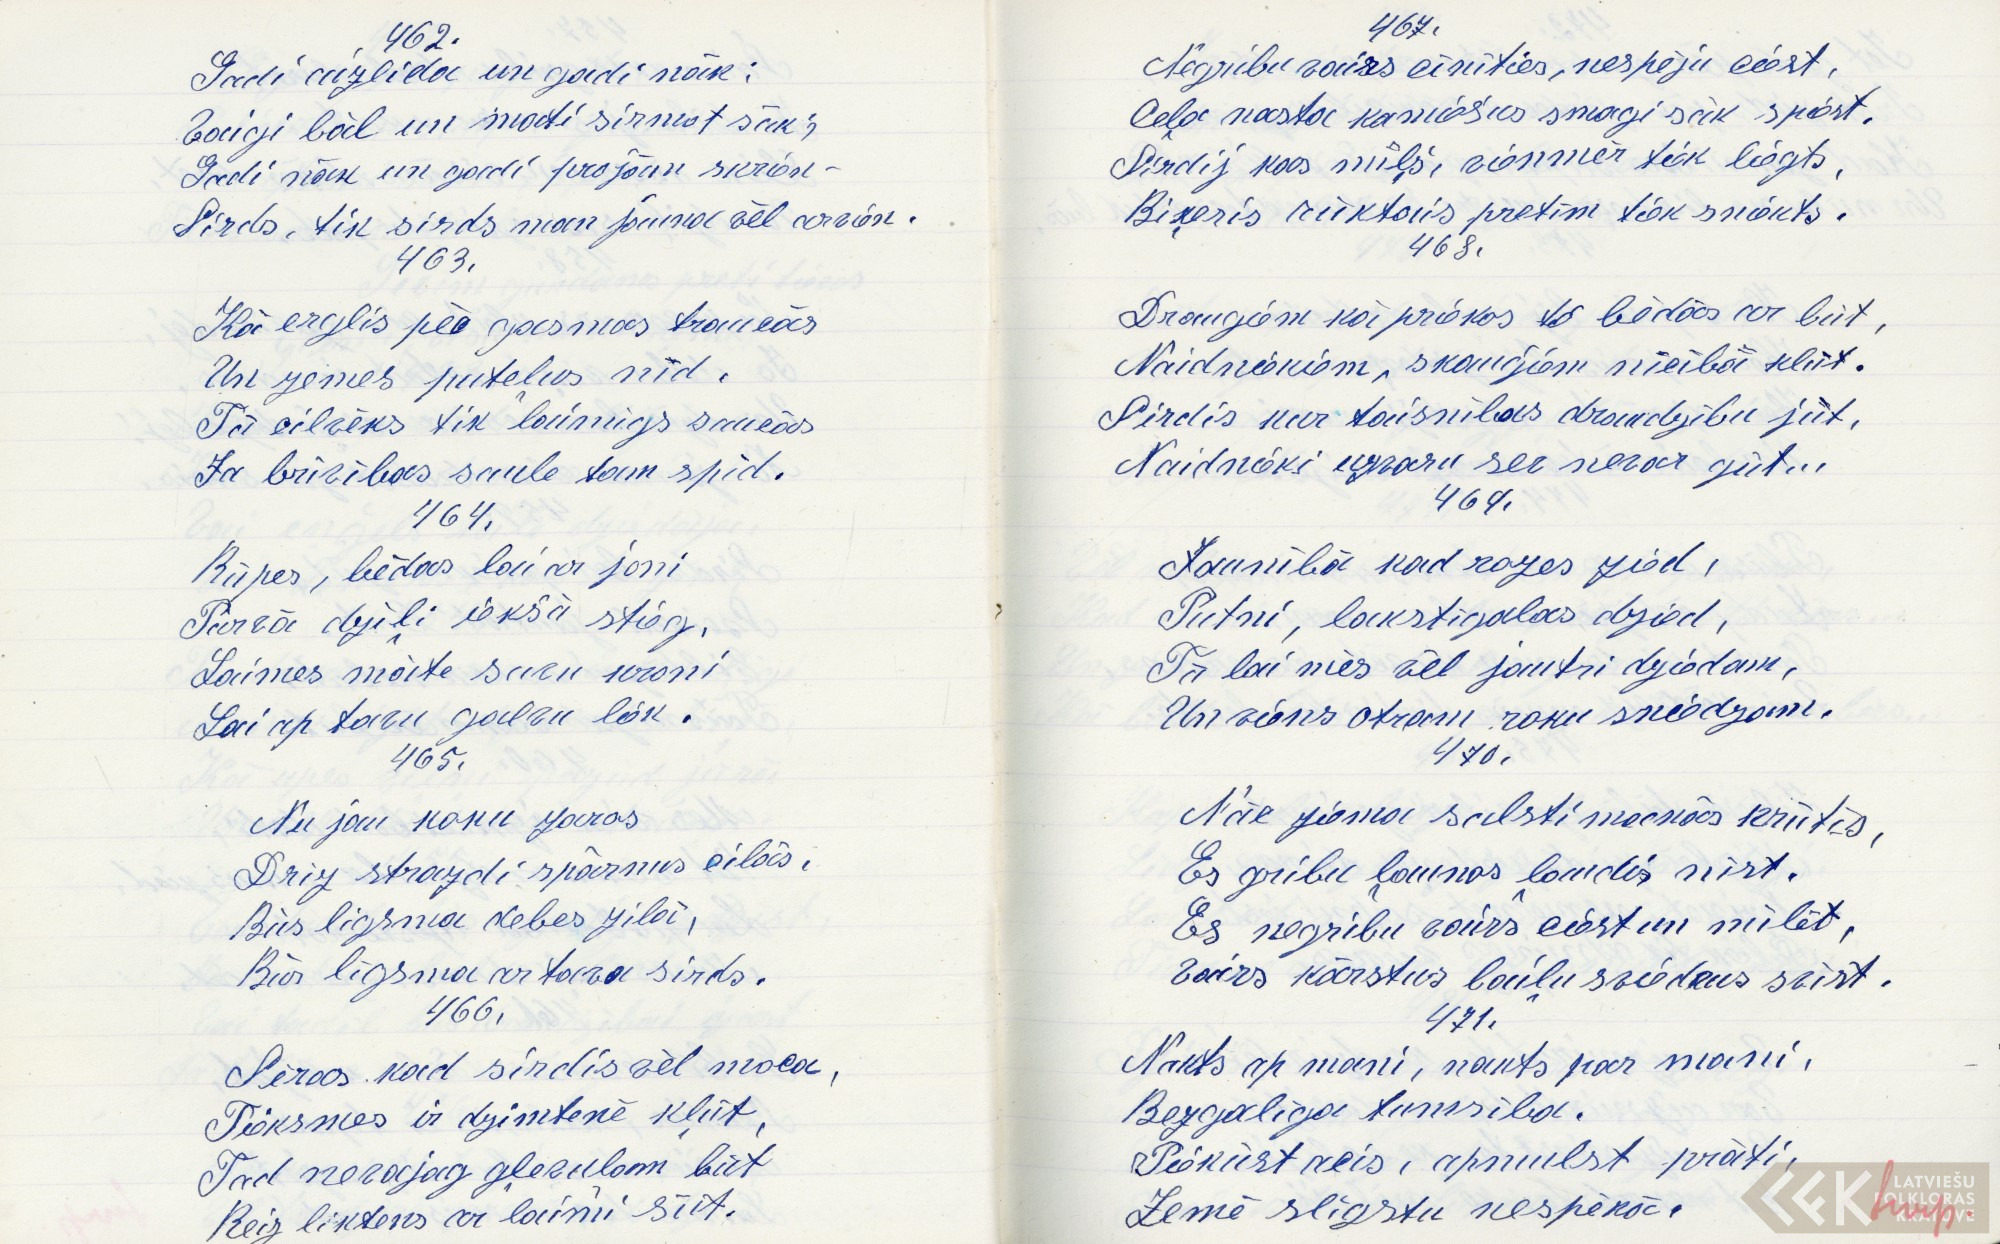 462.
Gadi aizlida un gadi nāk:
Vaigi bāl un mati sirmot sāk;
Gadi nāk un gadi projām skrien -
Sirds, tik sirds man jauna vēl arvien.
463.
Kā erglis pēc gaismas traucās
Un zemes puteļus nīd.
Tā cilvēks tik laimīgs saucās
Ja brīvības saule tam spīd.
464.
Rūpes, bēdas lai ar joni
Purvā dziļi iekšā stieg,
Laimes māte savu kroni
Lai ap tavu galvu liek.
465.
Nu jau koku zaros
Drīz strazdi spārnus cilās.
Būs līgsma debes zilā,
Būs līgsma ar tava sirds.
466.
Sēras kad sirdis vēl moca,
Tieksmes ir dzimtenē kļūt,
Tad nevajag gļevulam būt
Reiz liktens ar laimi sūt.
467.
Negribu vairs cīnīties, nespēju ciest,
Ceļa nasta kamiešus smagi sāk spiest.
Sirdij kas mīļš, vienmēr tiek liegts,
Biķeris rūktais pretim tiek sniekts.
468.
Draugiem kā priekos tā bēdās ar būt,
Naidniekiem, skauģiem nīcībā klūt.
Sirdis kur taisnības draudzību jūt,
Naidnieki uzvaru sev nevar gūt...
469.
Jaunībā kad rozes zied,
Putni, lakstīgalas dzied,
Tā lai mēs vēl jautri dziedam,
Un viens otram roku sniedzam.
470.
Nāc ziema salsti mockās krūtīs,
Es gribu ļaunos ļaudis nīst.
Es negribu vairs ciest un mīlēt,
Vairs karstus baiļu sviedrus svīst.
471.
Nakts ap mani, nakts par mani,
Bezgalīga tumsība.
Piekūst acis, apmulst prāti,
Zemē slīgstu nespēkā.
LATVIEŠU
FOLKLORAS
KRĀTUVE